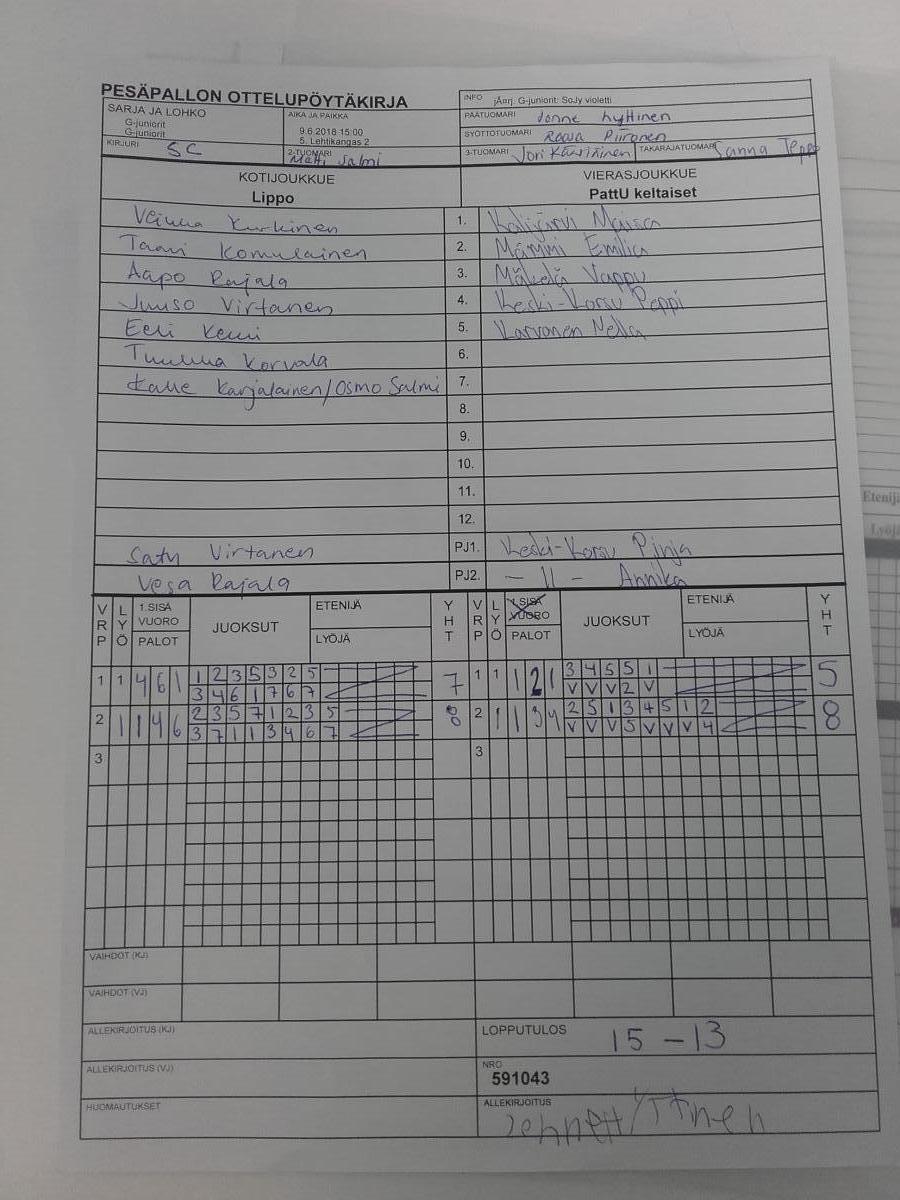 PESÄPALLON OTTELUPÖYTÄKIRJA
SARJA JA LOHKO
G-juniorit
G-juniorit
AIKA JA PAIKKA
9.6.2018 15:00
5. Lehtikangas 2
INFO jÄrj. G-juniorit: SoJy violetti
PÄÄTUOMARI Jonne Lyttinen
SYÖTTÖTUOMARI Roosa Piironen
KIRJURI SC
2-TUOMARI Matti Salmi
3-TUOMARI Jori
TAKARAJATUOMARI Sanna
KOTIJOUKKUE
Lippo
VIERASJOUKKUE
PattU keltaiset
Kurkinen 1. Maisa
Taavi Komulainen 2. Emilia
Aapo Rajala 3. Mäkelä Vappu
Juuso Virtanen 4. Keski-Korsu Peppi
Eeli 5. Karvonen Nella
Korvala 6.
Kalle Karjalainen/Osmo Salmi 7.
8.
9.
10.
11.
12.
Satu Virtanen PJ1. Keski-Korsu Pinja
Vesa Rajala PJ2. - 11 - Annika
VRP LYÖ 1.SISÄ VUORO PALOT JUOKSUT ETENIJÄ LYÖJÄ YHT VRP LYÖ 1.SISÄ VUORO PALOT JUOKSUT ETENIJÄ LYÖJÄ YHT
1 1 4 6 1 1 2 3 5 3 2 5 7 1 1 1 2 1 3 4 5 5 1 5
3 4 6 1 7 6 7 V V V 2 V
2 1 1 4 6 2 3 5 7 1 2 3 5 8 2 1 1 3 4 2 5 1 3 4 5 1 2 8
3 7 1 1 3 4 6 7 V V V 5 V V V 4
3 3
VAIHDOT (KJ)
VAIHDOT (VJ)
ALLEKIRJOITUS (KJ)
LOPPUTULOS 15 - 13
ALLEKIRJOITUS (VJ)
NRO
591043
HUOMAUTUKSET
ALLEKIRJOITUS
Etenijä
Lyöjä